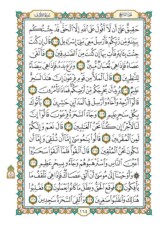 حَقِيقٌ عَلَىٰٓ أَن لَّآ أَقُولَ عَلَى ٱللَّهِ إِلَّا ٱلْحَقَّ قَدْ جِئْتُكُم
بِبَيِّنَةٍ مِّن رَّبِّكُمْ فَأَرْسِلْ مَعِىَ بَنِىٓ إِسْرَٰٓءِيلَ قَالَ إِن كُنتَ
جِئْتَ بِـَٔايَةٍ فَأْتِ بِهَآ إِن كُنتَ مِنَ ٱلصَّٰدِقِينَ فَأَلْقَىٰ
عَصَاهُ فَإِذَا هِىَ ثُعْبَانٌ مُّبِينٌ وَنَزَعَ يَدَهُۥ فَإِذَا هِىَ بَيْضَآءُ
لِلنَّٰظِرِينَ قَالَ ٱلْمَلَأُ مِن قَوْمِ فِرْعَوْنَ إِنَّ هَٰذَا لَسَٰحِرٌ
عَلِيمٌ يُرِيدُ أَن يُخْرِجَكُم مِّنْ أَرْضِكُمْ فَمَاذَا تَأْمُرُونَ
قَالُوٓا۟ أَرْجِهْ وَأَخَاهُ وَأَرْسِلْ فِى ٱلْمَدَآئِنِ حَٰشِرِينَ يَأْتُوكَ
بِكُلِّ سَٰحِرٍ عَلِيمٍ وَجَآءَ ٱلسَّحَرَةُ فِرْعَوْنَ قَالُوٓا۟ إِنَّ لَنَا
لَأَجْرًا إِن كُنَّا نَحْنُ ٱلْغَٰلِبِينَ قَالَ نَعَمْ وَإِنَّكُمْ
لَمِنَ ٱلْمُقَرَّبِينَ قَالُوا۟ يَٰمُوسَىٰٓ إِمَّآ أَن تُلْقِىَ وَإِمَّآ أَن نَّكُونَ
نَحْنُ ٱلْمُلْقِينَ قَالَ أَلْقُوا۟ فَلَمَّآ أَلْقَوْا۟ سَحَرُوٓا۟
أَعْيُنَ ٱلنَّاسِ وَٱسْتَرْهَبُوهُمْ وَجَآءُو بِسِحْرٍ عَظِيمٍ
۞ وَأَوْحَيْنَآ إِلَىٰ مُوسَىٰٓ أَنْ أَلْقِ عَصَاكَ فَإِذَا هِىَ تَلْقَفُ مَا
يَأْفِكُونَ فَوَقَعَ ٱلْحَقُّ وَبَطَلَ مَا كَانُوا۟ يَعْمَلُونَ فَغُلِبُوا۟
هُنَالِكَ وَٱنقَلَبُوا۟ صَٰغِرِينَ وَأُلْقِىَ ٱلسَّحَرَةُ سَٰجِدِينَ
١٦٤